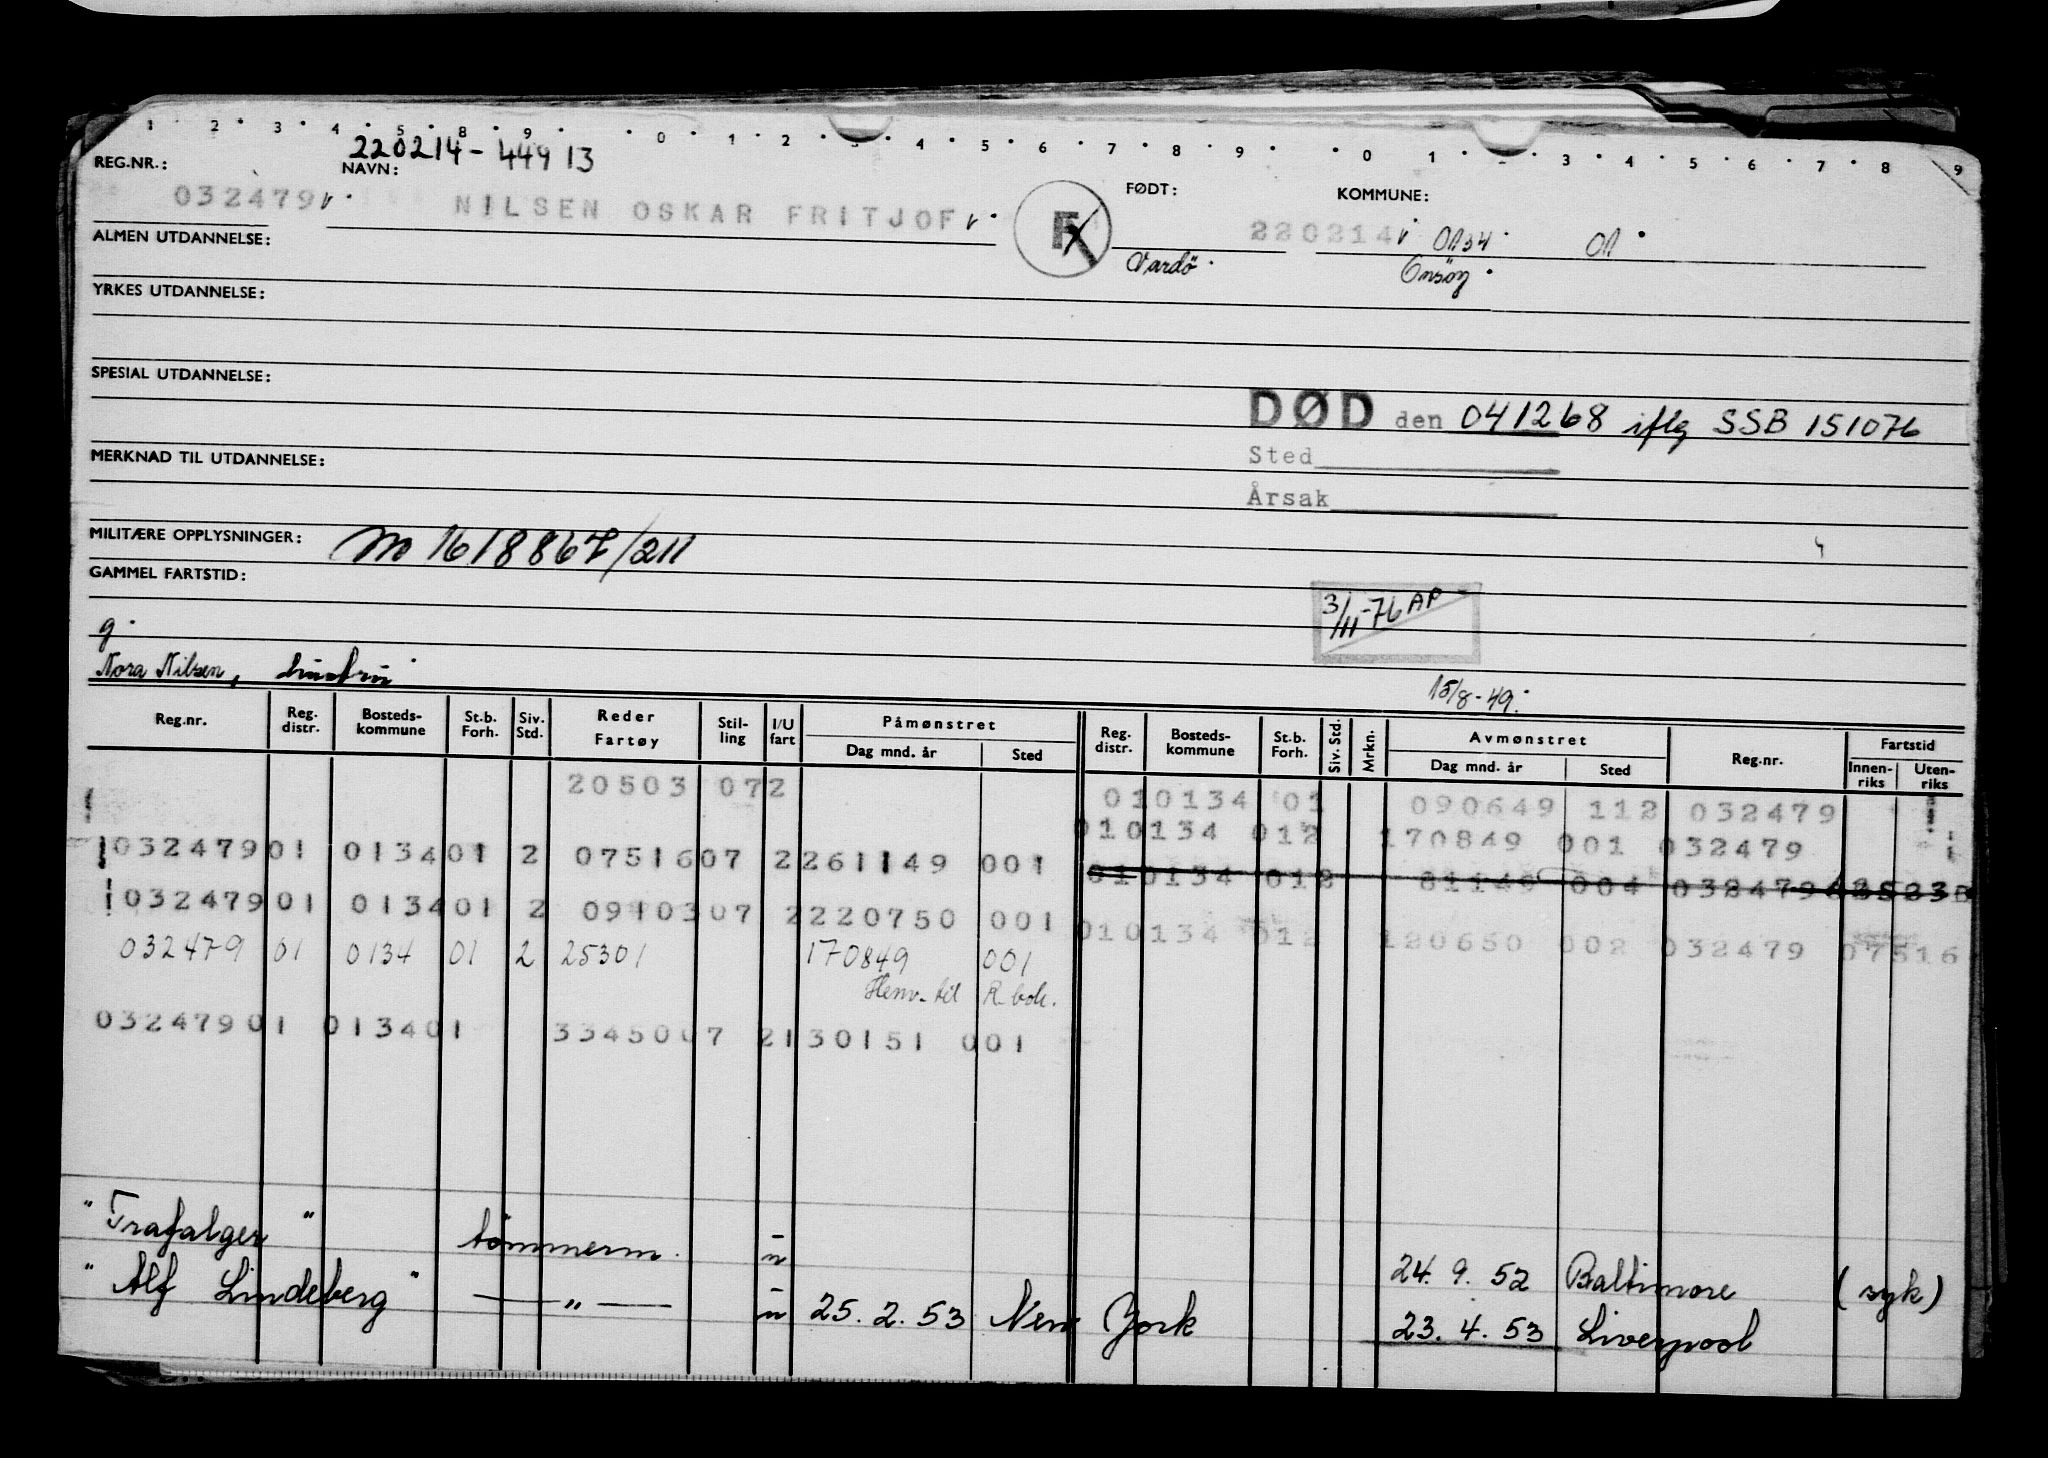 1 · 2 · 3 · 4 · 5 · 8 · 9 · · 0 · 1 · 2 · · 4 · 5 · 6 · 7 · 8 · 9 · · 0 · 1 · · 3 · 4 · 5 · 6 · 7 · 8 · 9
220214-44913
REG.NR.: NAVN: FØDT: KOMMUNE:
032479 NILSEN OSKAR FRITJOF F 220214 0134 01
Vardö Onsöy
ALMEN UTDANNELSE:
YRKES UTDANNELSE:
SPESIAL UTDANNELSE:
DØD den 041268 iflg SSB 151076
MERKNAD TIL UTDANNELSE:
Sted
Årsak
MILITÆRE OPPLYSNINGER: m 1618867/211
GAMMEL FARTSTID:
3/11-76 AP
g.
Nora Nilsen, hustru
15/8-49.
Reg.nr. Reg. distr. Bosteds-kommune St.b. Forh. Siv. Std. Reder Fartøy Stil-ling I/U fart Påmønstret Dag mnd. år Sted Reg. distr. Bosteds-kommune St.b. Forh. Siv. Std. Mrkn. Avmønstret Dag mnd. år Sted Reg.nr. Fartstid Innen-riks Uten-riks
20503 072 010134 01 090649 112 032479
010134 012 170849 001 032479
032479 01 0134 01 2 07516 07 2 261149 001
010134 012 004 032479
032479 01 0134 01 2 09103 07 2 220750 001
010134 012 120650 002 032479 07516
032479 01 0134 01 2 25301 170849 001
Henv. til R. bok.
032479 01 0134 01 33450 07 2 130151 001
"Trafalger" tömmerm. u 24. 9. 52 Baltimore (syk)
"Alf Lindeberg" — " — u 25. 2. 53 New York 23. 4. 53 Liverpool